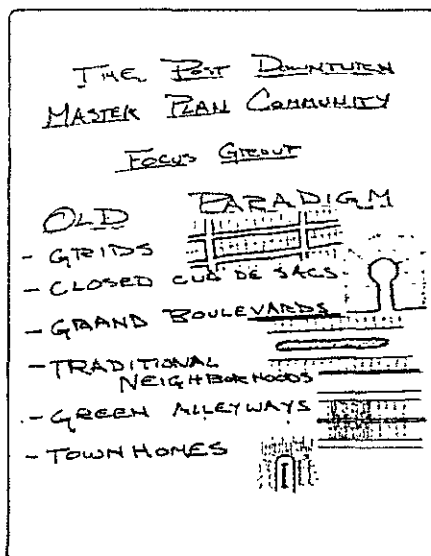 THE POST DOWNTURN
MASTER PLAN COMMUNITY
FOCUS GROUP
OLD PARADIGM
- GRIDS
- CLOSED CUL DE SACS
- GRAND BOULEVARDS
- TRADITIONAL
NEIGHBORHOODS
- GREEN ALLEYWAYS
- TOWNHOMES